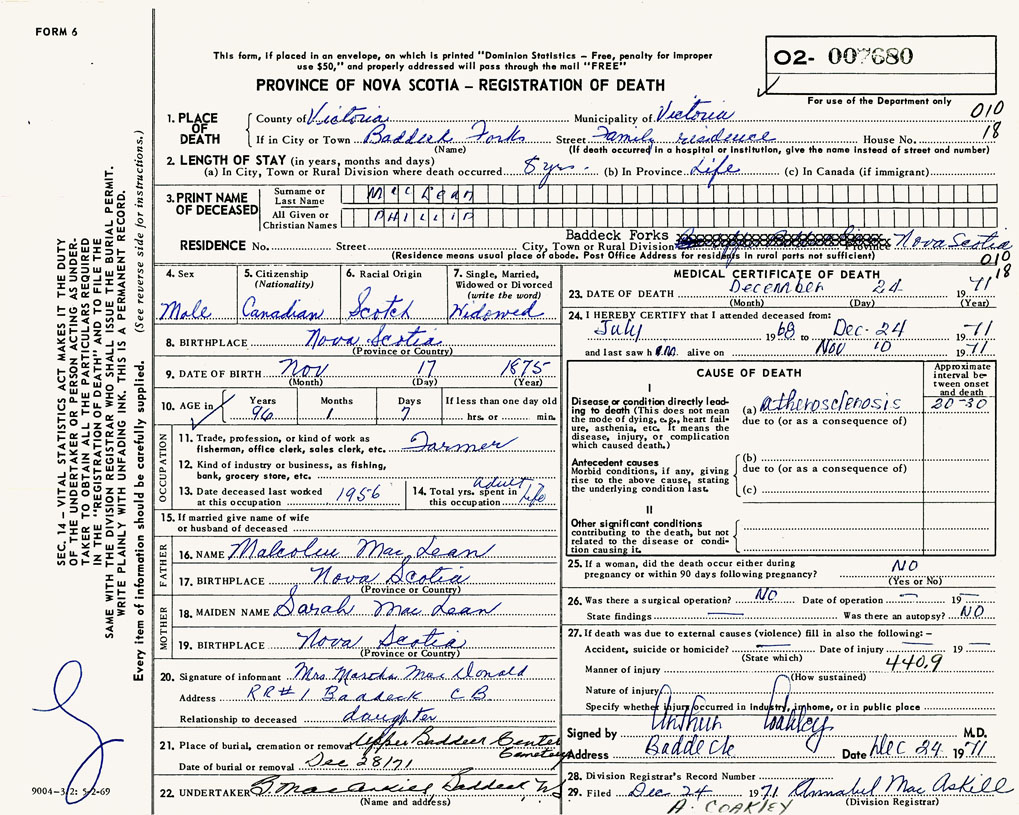 FORM 6
This form, if placed in an envelope, on which is printed "Dominion Statistics – Free, penalty for improper
use $50," and properly addressed will pass through the mail "FREE"
O2- 007680
PROVINCE OF NOVA SCOTIA – REGISTRATION OF DEATH
For use of the Department only
010
18
1. PLACE OF DEATH
County of Victoria Municipality of Victoria
If in City or Town Baddeck Forks Street Family residence House No.
(Name) (If death occurred in a hospital or institution, give the name instead of street and number)
2. LENGTH OF STAY (in years, months and days)
(a) In City, Town or Rural Division where death occurred 8 yrs. (b) In Province Life (c) In Canada (if immigrant)
3. PRINT NAME OF DECEASED
Surname or Last Name MacLean
All Given or Christian Names PHILLIP
RESIDENCE No. Street City, Town or Rural Division Baddeck Forks Province Nova Scotia
(Residence means usual place of abode. Post Office Address for residents in rural parts not sufficient)
010
18
4. Sex
Male
5. Citizenship
(Nationality)
Canadian
6. Racial Origin
Scotch
7. Single, Married,
Widowed or Divorced
(write the word)
Widowed
8. BIRTHPLACE Nova Scotia
(Province or Country)
9. DATE OF BIRTH Nov 17 1875
(Month) (Day) (Year)
10. AGE in
Years Months Days If less than one day old
96 1 7 hrs. or min.
OCCUPATION
11. Trade, profession, or kind of work as
fisherman, office clerk, sales clerk, etc. Farmer
12. Kind of industry or business, as fishing,
bank, grocery store, etc.
13. Date deceased last worked
at this occupation 1956
14. Total yrs. spent in
this occupation adult life
15. If married give name of wife
or husband of deceased
FATHER
16. NAME Malcolm MacLean
17. BIRTHPLACE Nova Scotia
(Province or Country)
MOTHER
18. MAIDEN NAME Sarah MacLean
19. BIRTHPLACE Nova Scotia
(Province or Country)
20. Signature of informant Mrs. Martha MacDonald
Address RR#1 Baddeck CB
Relationship to deceased daughter
21. Place of burial, cremation or removal Upper Baddeck Center Cemetery
Date of burial or removal Dec 28/71
22. UNDERTAKER Baddeck, NS
(Name and address)
MEDICAL CERTIFICATE OF DEATH
23. DATE OF DEATH December 24 1971
(Month) (Day) (Year)
24. I HEREBY CERTIFY that I attended deceased from:
July 1968 to Dec. 24 1971
and last saw him alive on Nov 10 1971
CAUSE OF DEATH
Approximate
interval be-
tween onset
and death
I
Disease or condition directly lead-
ing to death (This does not mean
the mode of dying, e.g., heart fail-
ure, asthenia, etc. It means the
disease, injury, or complication
which caused death.)
(a) atherosclerosis 20-30
due to (or as a consequence of)
Antecedent causes
Morbid conditions, if any, giving
rise to the above cause, stating
the underlying condition last.
(b)
due to (or as a consequence of)
(c)
II
Other significant conditions
contributing to the death, but not
related to the disease or condi-
tion causing it.
25. If a woman, did the death occur either during
pregnancy or within 90 days following pregnancy? NO
(Yes or No)
26. Was there a surgical operation? NO Date of operation – 19 –
State findings — Was there an autopsy? NO
27. If death was due to external causes (violence) fill in also the following: –
Accident, suicide or homicide? — Date of injury — 19 —
(State which)
Manner of injury 440.9
(How sustained)
Nature of injury
Specify whether injury occurred in industry, in home, or in public place
Signed by Arthur Coakley M.D.
Address Baddeck Date Dec 24 1971
28. Division Registrar's Record Number
29. Filed Dec. 24 1971 Annabel MacAskill
(Division Registrar)
A. COAKLEY
SEC. 14 – VITAL STATISTICS ACT MAKES IT THE DUTY
OF THE UNDERTAKER OR PERSON ACTING AS UNDER-
TAKER TO OBTAIN ALL THE PARTICULARS REQUIRED
IN THE "REGISTRATION OF DEATH" AND TO FILE THE
SAME WITH THE DIVISION REGISTRAR WHO SHALL ISSUE THE BURIAL PERMIT.
WRITE PLAINLY WITH UNFADING INK. THIS IS A PERMANENT RECORD.
Every item of information should be carefully supplied. (See reverse side for instructions.)
9004-3/2: 5-2-69